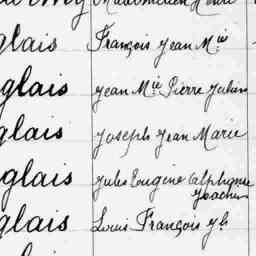 glais François Jean Mie
glais Jean Mie Pierre Julien
glais Joseph Jean Marie
glais Jules Eugène Alphonse
Joachim
glais Louis François